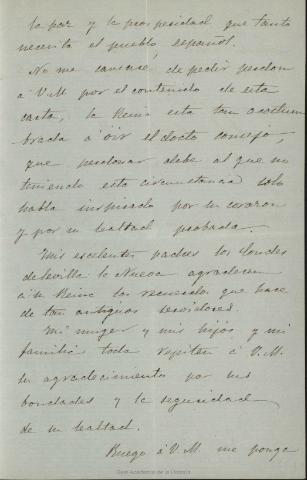 la paz y la prosperidad que tanto
necesita el pueblo español.
No me cansaré de pedir perdon
á V.M. por el contenido de esta
carta, la Reina esta tan acostum
brada á oir el docto consejo,
que perdonar debe al que no
teniendo esta circunstancia solo
habla inspirado por su corazon
y por su lealtad probada.
Mis escelentes padres los Condes
de Sevilla la Nueva agradecen
á su Reina los recuerdos que hace
de tan antiguos servidores.
Mi muger y mis hijos y mi
familia toda repiten á V.M.
su agradecimiento por sus
bondades y la seguridad
de su lealtad.
Ruego á V.M. me ponga
Real Academia de la Historia